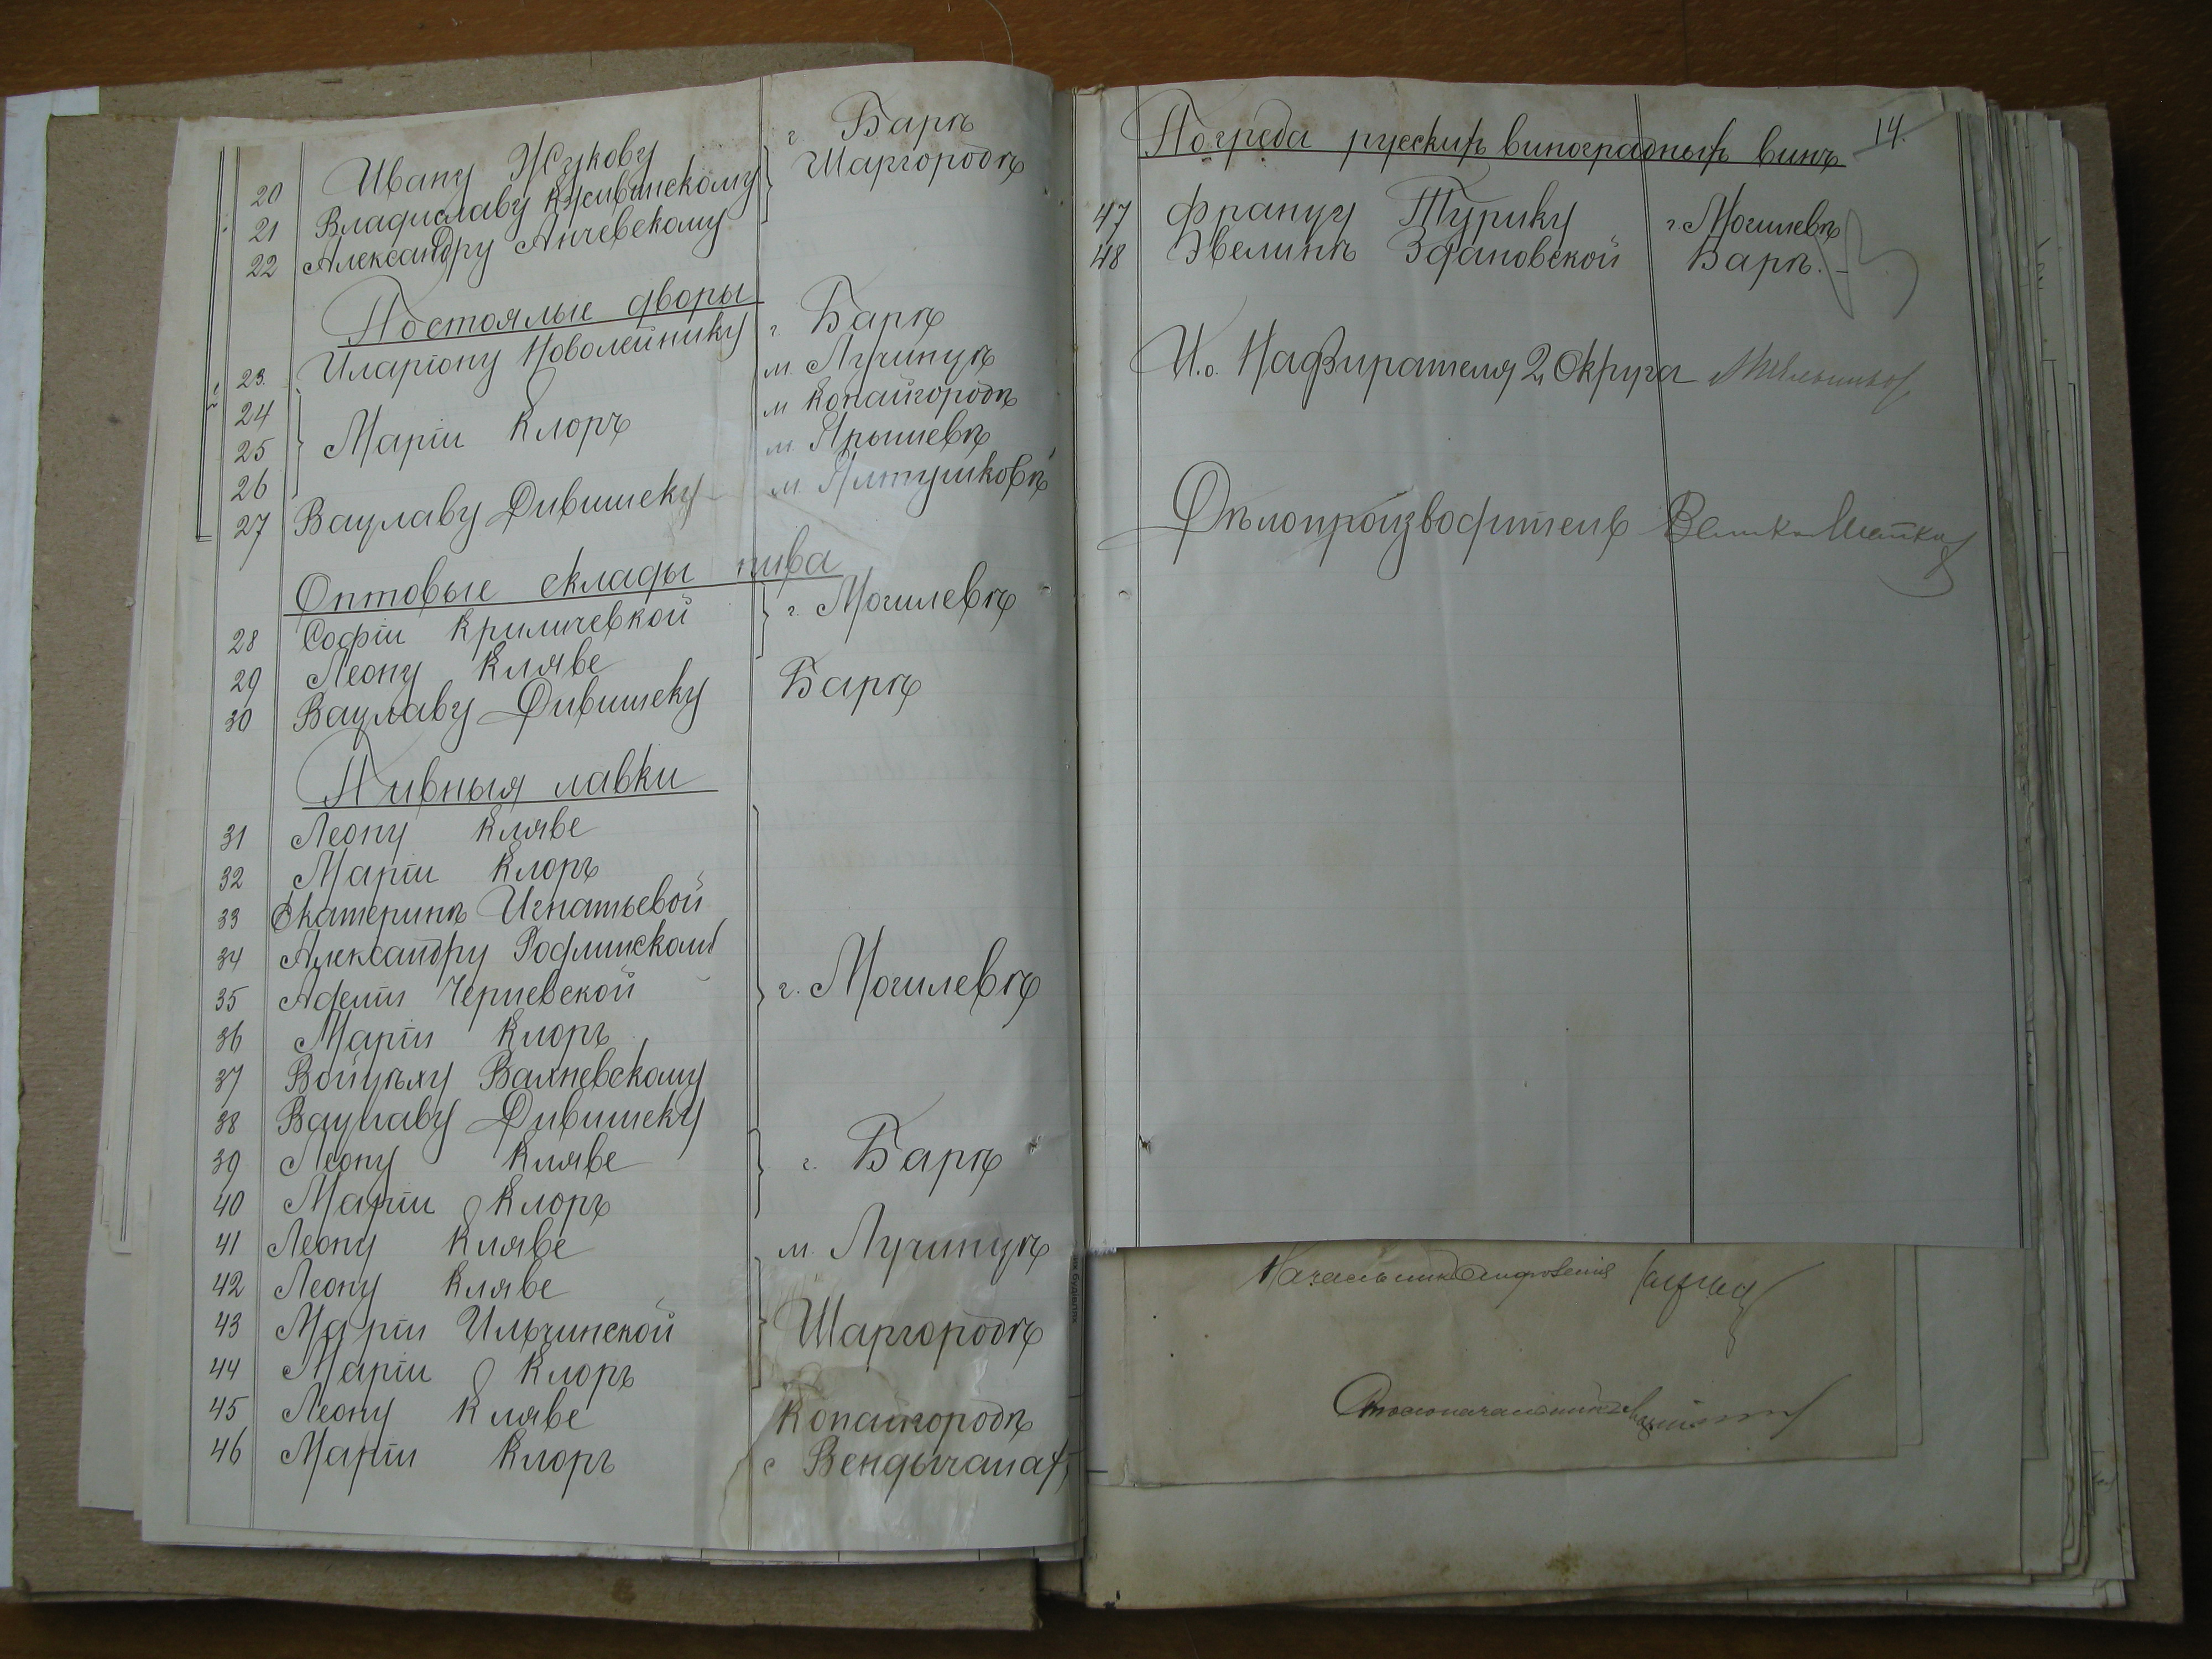 20 Ивану Жукову г Барѣ
21 Владиславу Шаргородѣ
22 Александру Анчевскому
Постоялые дворы
23. Иларіону Новолейнику г. Барѣ
24 м. Лучинцѣ
25 Маріи Клоръ м Копайгородѣ
26 м. Ярышевѣ
27 Вацлаву Дивишеку м. Ялтушковѣ
Оптовые склады пива
28 Софіи Криличевкой г. Могилевѣ
29 Леону Кляве
30 Вацлаву Дивишеку Барѣ
Пивныя лавки
31 Леону Кляве
32 Маріи Клоръ
33 Екатеринѣ Игнатьевой
34 Александру
35 Аделіи Черневской г. Могилевѣ
36 Маріи Клоръ
37 Войцѣху Вахневскому
38 Вацлаву Дивишеку
39 Леону Кляве г. Барѣ
40 Маріи Клоръ
41 Леону Кляве м. Лучинцѣ
42 Леону Кляве
43 Маріи Ильчинской Шаргородѣ
44 Маріи Клоръ
45 Леону Кляве Копайгородѣ
46 Маріи Клоръ с Вендычанах
14.
Погреба русскихъ виноградныхъ винъ
47 Францу Турику г. Могилевѣ
48 Эвелинѣ Здановской Барѣ.
И.о. Надзирателя 2 Округа
Дѣлопроизводитель